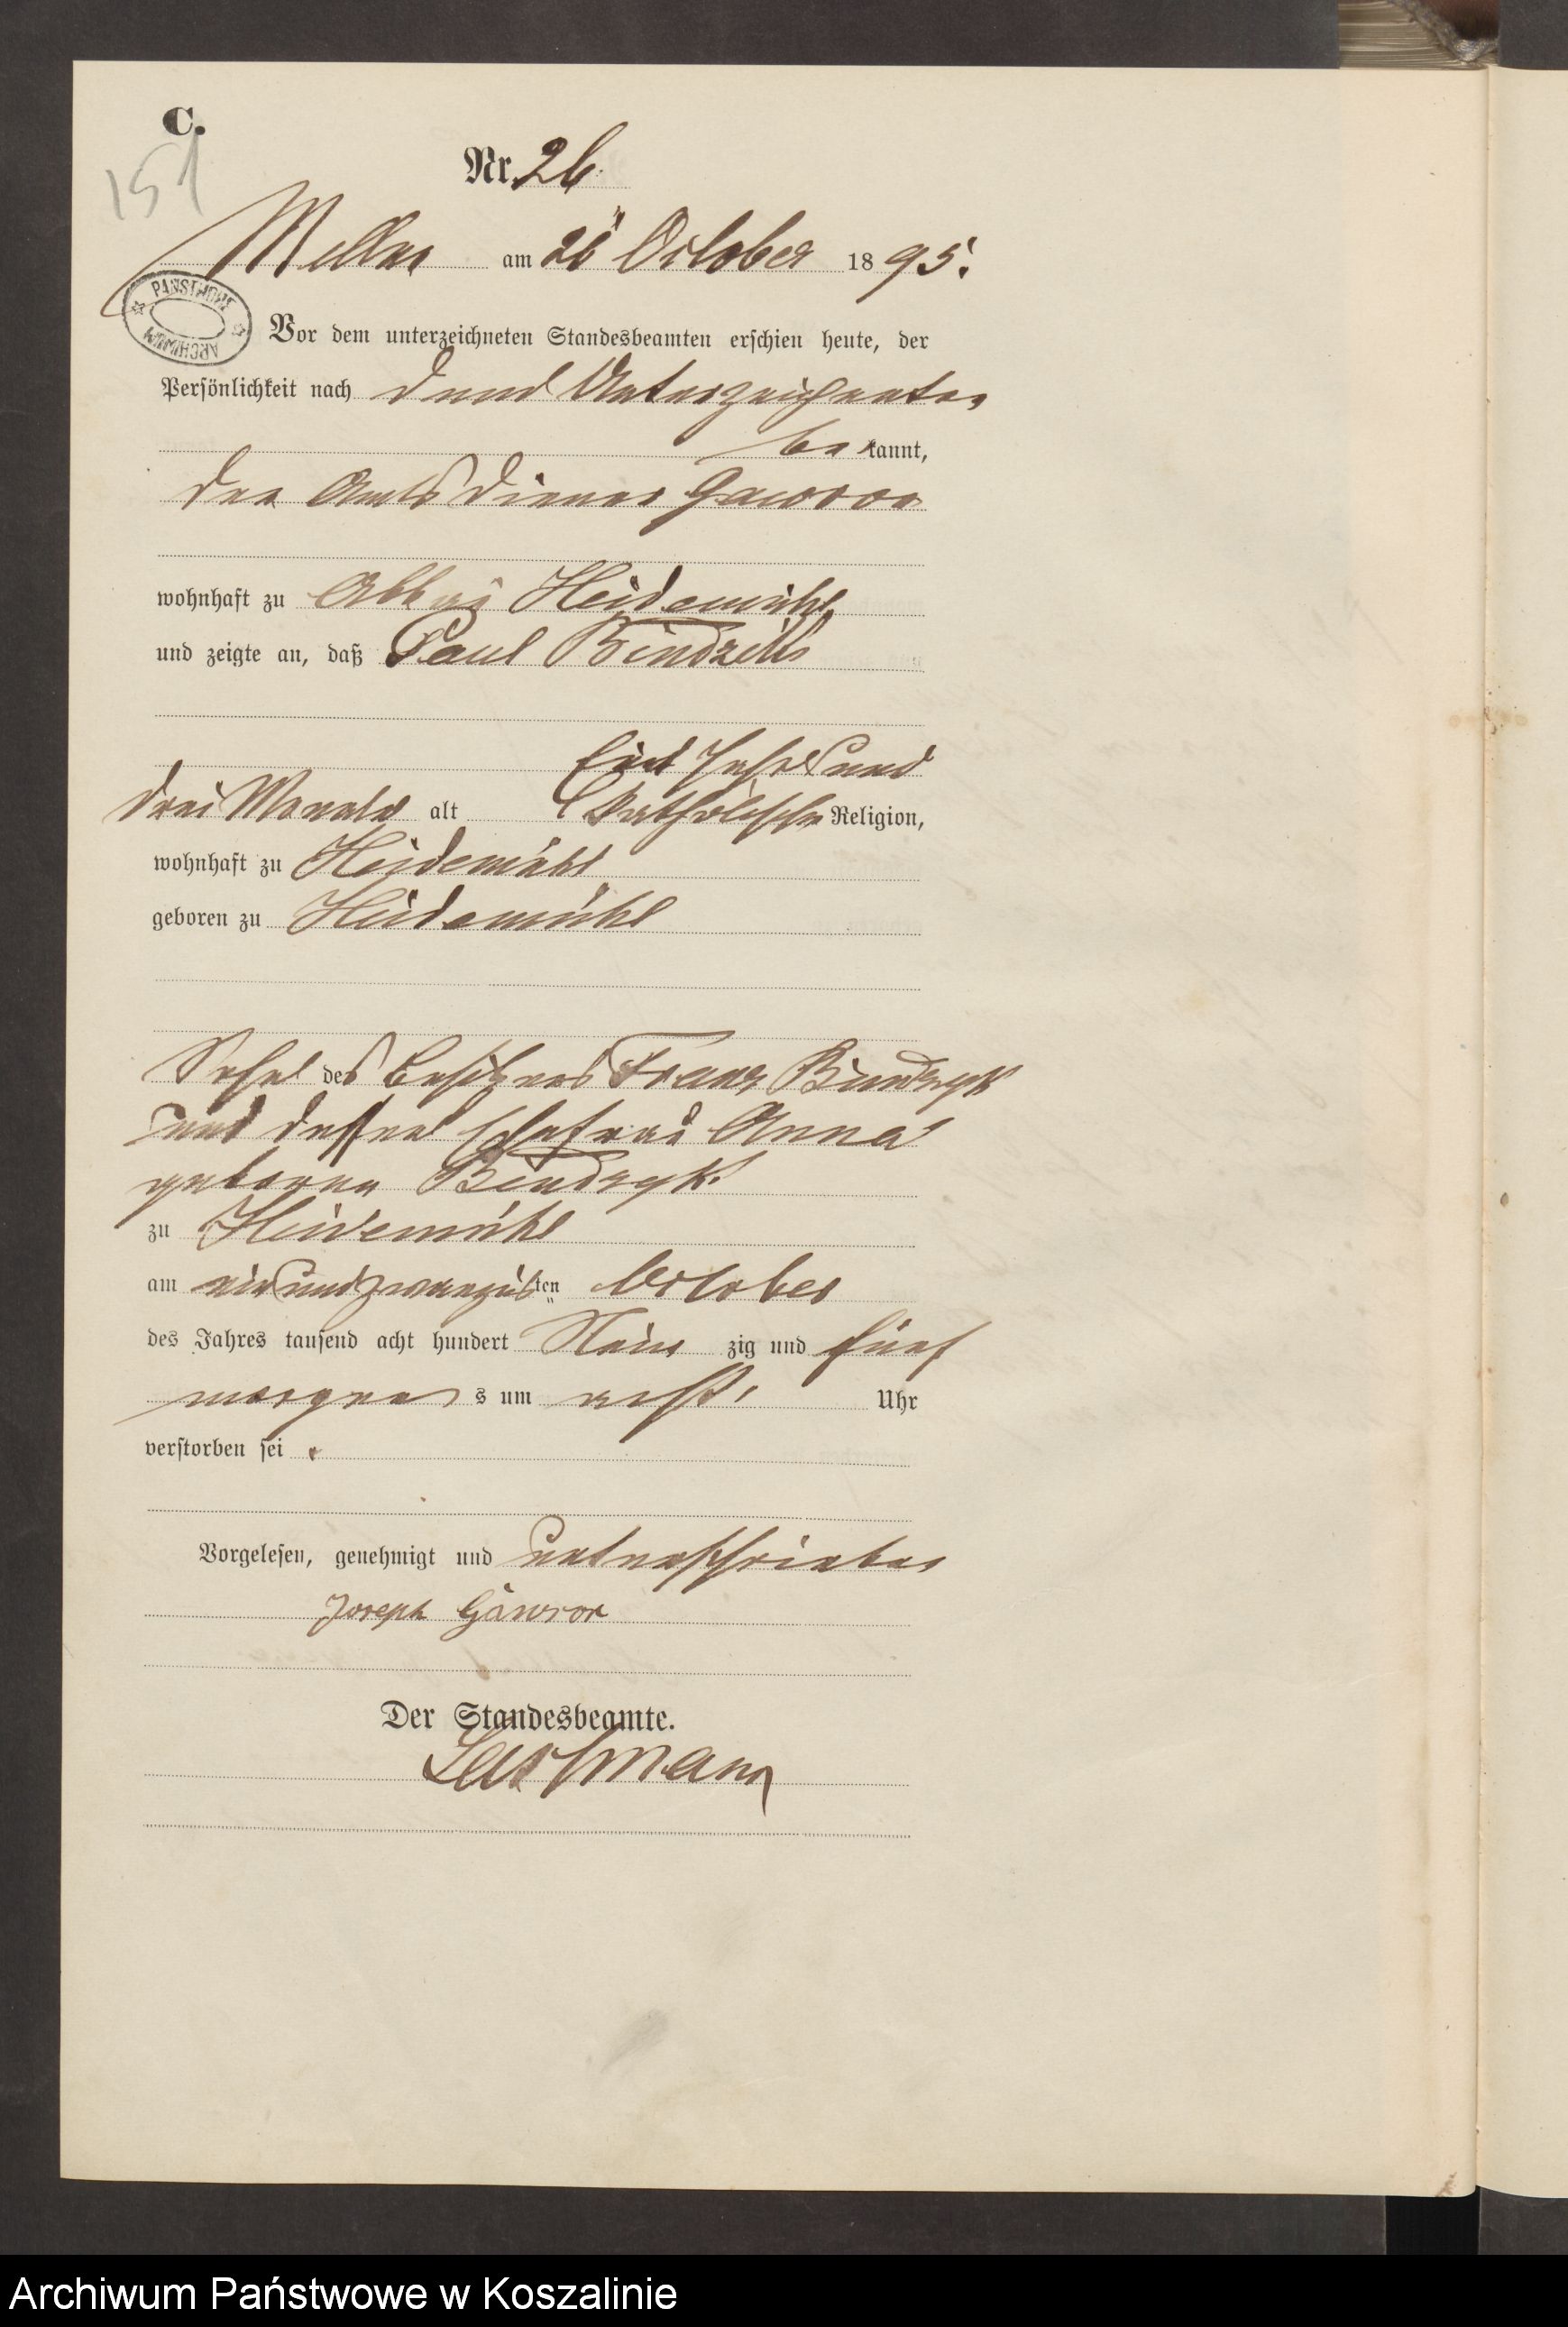 C.
151
Nr. 26.
am 26ten October 1895.
PAŃSTWOWE ARCHIWUM
Vor dem unterzeichneten Standesbeamten erschien heute, der
Persönlichkeit nach dem Unterzeichneten
bekannt,
der Amtsdiener Gawror
wohnhaft zu Abbau Heidemühl
und zeigte an, daß Paul
Ein Jahr und
drei Monate alt katholischer Religion,
wohnhaft zu Heidemühl
geboren zu Heidemühl
Sohn des Besitzers Franz Bindzyk
und dessen Ehefrau Anna
geborene Bindzyk.
zu Heidemühl
am ten October
des Jahres tausend acht hundert Neun zig und fünf
morgens um acht Uhr
verstorben sei.
Vorgelesen, genehmigt und unterschrieben
Joseph Gawror
Der Standesbeamte.
Archiwum Państwowe w Koszalinie